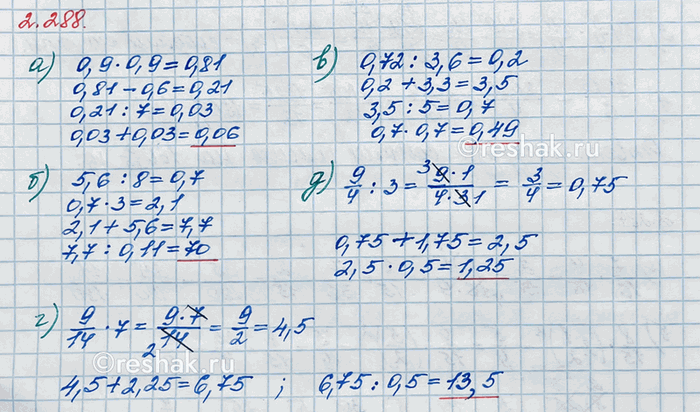 2.288.
а) 0,9·0,9=0,81
0,81-0,6=0,21
0,21:7=0,03
0,03+0,03=0,06
б) 5,6:8=0,7
0,7·3=2,1
2,1+5,6=7,7
7,7:0,11=70
в) 0,72:3,6=0,2
0,2+3,3=3,5
3,5:5=0,7
0,7·0,7=0,49
д) 9/4 : 3 = 3 9·1/4·3 1 = 3/4 = 0,75
0,75+1,75=2,5
2,5·0,5=1,25
г) 9/14 · 7 = 9·7/14 2 = 9/2 = 4,5
4,5+2,25=6,75 ; 6,75:0,5=13,5
©reshak.ru
©reshak.ru
©reshak.ru
©reshak.ru